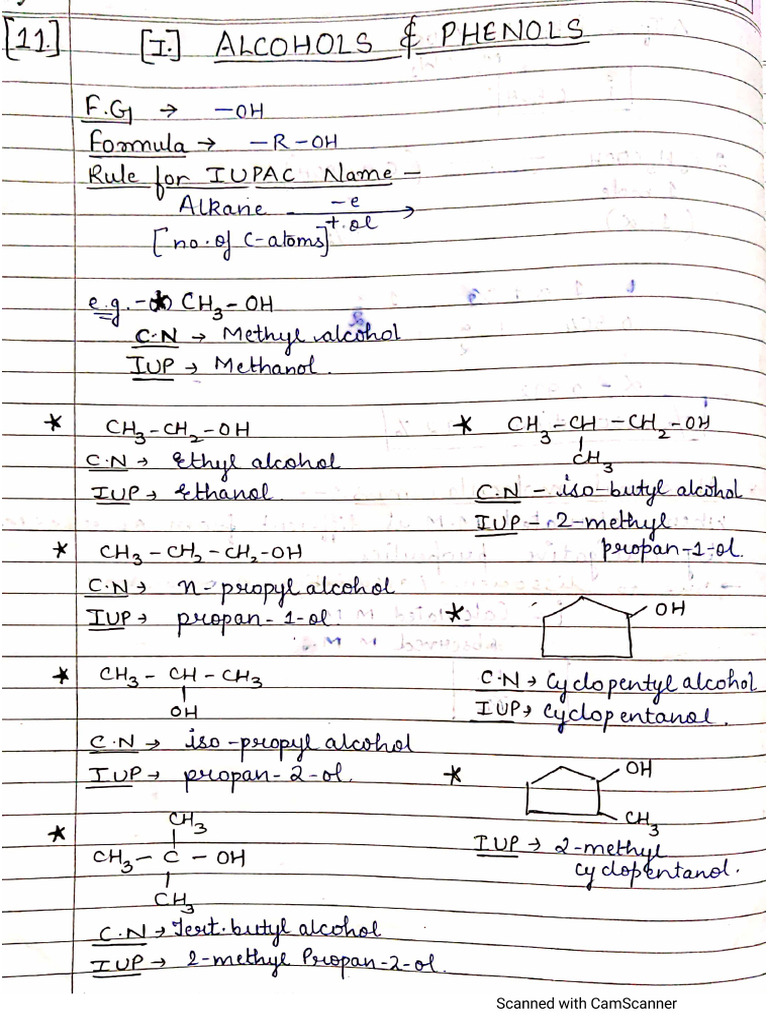 [11.] [I.] ALCOHOLS & PHENOLS
F.G → -OH
Formula → -R-OH
Rule for IUPAC Name -
Alkane -e + ol →
[no. of C-atoms]
e.g. - CH3-OH
C.N → Methyl alcohol
IUP → Methanol.
* CH3-CH2-OH
C.N → Ethyl alcohol
IUP → Ethanol.
* CH3-CH2-CH2-OH
C.N → n-propyl alcohol
IUP → propan-1-ol.
* CH3-CH-CH3
OH
C.N → iso-propyl alcohol
IUP → propan-2-ol.
*
CH3
CH3-C-OH
CH3
C.N → Tert.butyl alcohol
IUP → 2-methyl Propan-2-ol.
* CH3-CH-CH2-OH
CH3
C.N - iso-butyl alcohol
IUP - 2-methyl
propan-1-ol.
* OH
C.N → Cyclopentyl alcohol
IUP → Cyclopentanol.
* OH
CH3
IUP → 2-methyl
cyclopentanol.
Scanned with CamScanner